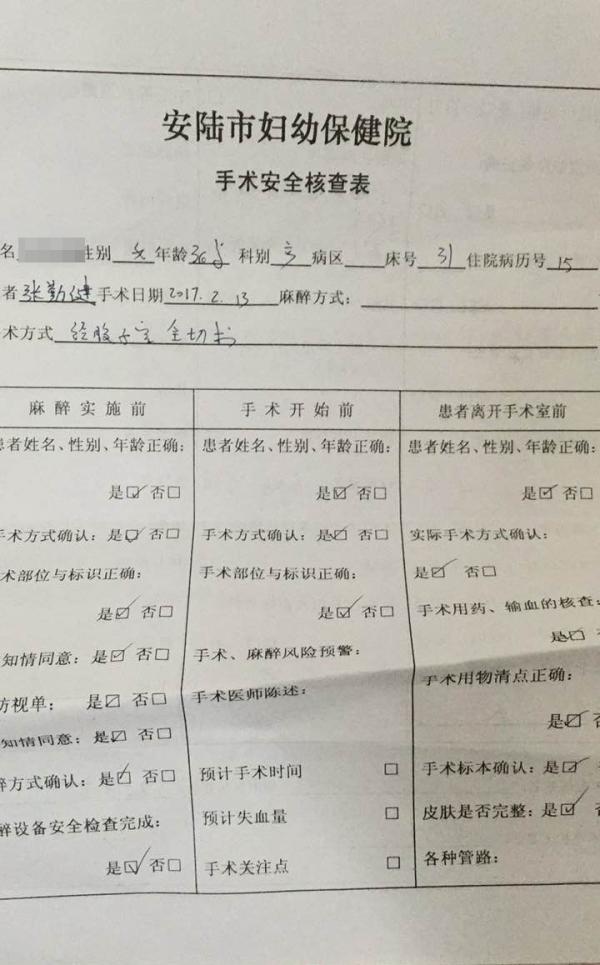 安陆市妇幼保健院
手术安全核查表
名 性别 女 年龄 36岁 科别 病区 床号 31 住院病历号 15
者 张勤健 手术日期 2017.2.13 麻醉方式:
术方式 经腹子宫全切术
麻醉实施前 手术开始前 患者离开手术室前
患者姓名、性别、年龄正确: 患者姓名、性别、年龄正确: 患者姓名、性别、年龄正确:
是☑ 否□ 是☑ 否□ 是☑ 否□
手术方式确认: 是☑ 否□ 手术方式确认: 是☑ 否□ 实际手术方式确认:
术部位与标识正确: 手术部位与标识正确: 是☑ 否□
是☑ 否□ 是☑ 否□ 手术用药、输血的核查:
知情同意: 是☑ 否□ 手术、麻醉风险预警: 是☑ 否
访视单: 是☑ 否□ 手术医师陈述: 手术用物清点正确:
知情同意: 是☑ 否□ 是☑ 否□
醉方式确认: 是☑ 否□ 预计手术时间 □ 手术标本确认: 是☑ 否
醉设备安全检查完成: 预计失血量 □ 皮肤是否完整: 是☑ 否
是☑ 否□ 手术关注点 □ 各种管路: